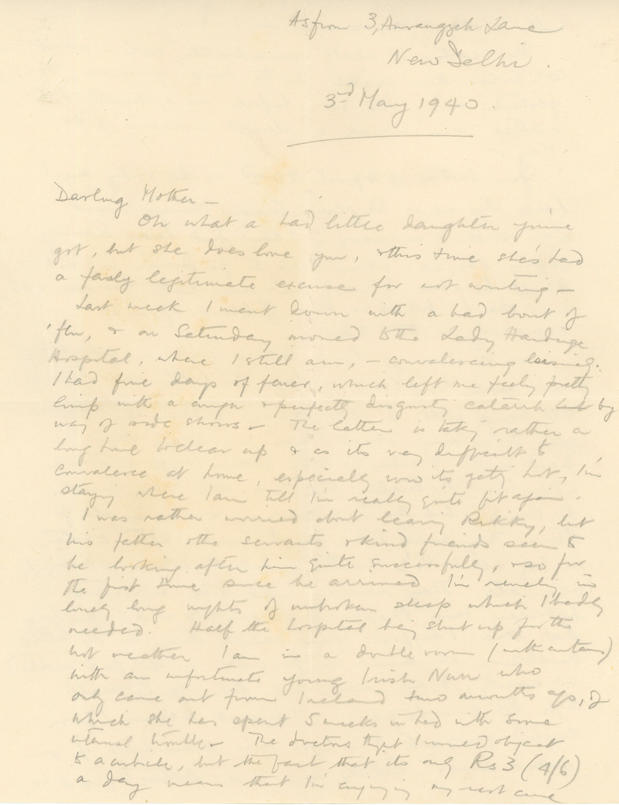 As from 3, Aurangzeb Lane
New Delhi.
3rd May 1940.
Darling Mother –
Oh what a bad little daughter you've
got, but she does love you, & this time she's had
a fairly legitimate excuse for not writing –
Last week I went down with a bad bout of
'flu, & on Saturday moved to the Lady Hardinge
Hospital, where I still am, – convalescing
I had five days of fever, which left me feeling pretty
limp with a cough & perfectly disgusting catarrh by
way of side shows – The latter is taking rather a
long time to clear up & as it's very difficult to
convalesce at home, especially now its getting hot, I'm
staying where I am till I'm really quite fit again.
I was rather worried about leaving Rikky, but
his father & the servants & kind friends seem to
be looking after him quite successfully, & so for
the first time since he arrived I'm in
lovely long nights of unbroken sleep which I badly
needed. Half the hospital being shut up for the
hot weather I am in a double room (with curtains)
with an unfortunate young Irish Nun who
only came out from Ireland two months ago, of
which she has spent 5 weeks in bed with some
internal trouble – The doctors thought I would object
to a cubicle, but the fact that its only Rs 3 (4/6)
a day means that I'm enjoying my rest cure